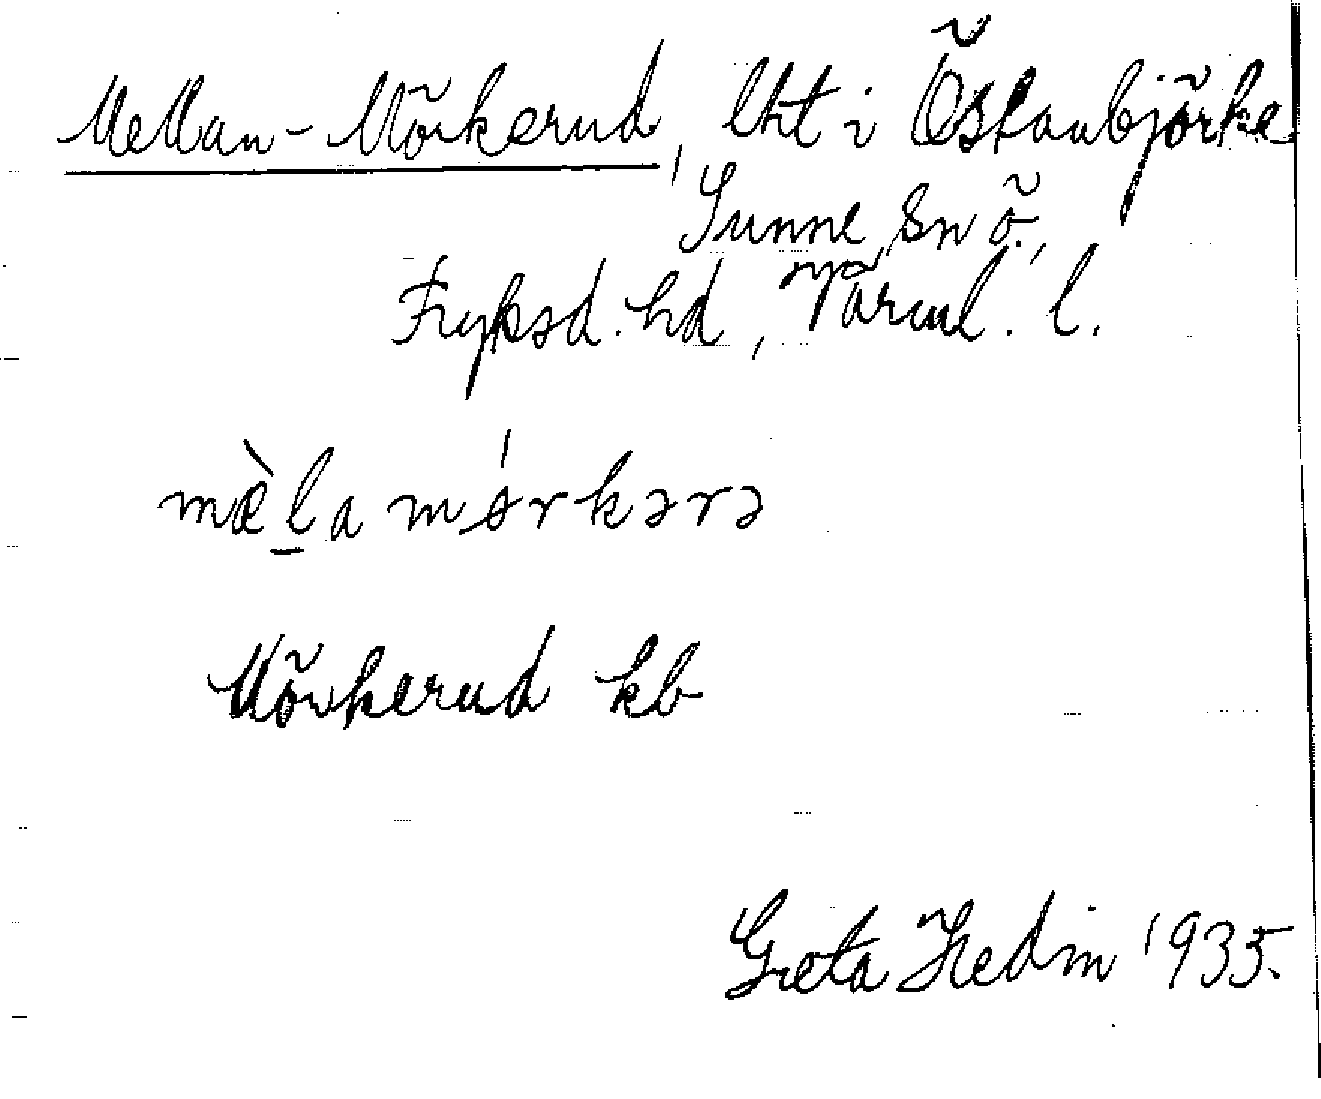 Mellan-Mörkerud, lht i Östanbjörke
Sunne sn ö.,
Fryksd. hd, Värml. l.
mæ̀l̠a mǿrkərə
Mörkerud kb
Greta Hedin 1935.